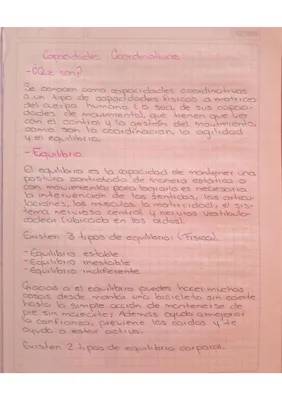 Capacidades Coordinativas
-¿Qué son?
Se conocen como capacidades coordinativas
a un tipo de capacidades físicas o motrices
del cuerpo humano (o sea, de sus capaci-
dades de movimiento), que tienen que ver
con el control y la gestión del movimiento,
como son la coordinación la agilidad
y el equilibrio.
-Equilibrio
El equilibrio es la capacidad de mantener una
postura controlada de manera estática o
con movimiento, para lograrlo es necesaria
la intervención de los sentidos, las articu-
laciones, los músculos, la motricidad, el sis-
tema nervioso central y nervios vestibulo-
coclear (ubicado en los oídos).
Existen 3 tipos de equilibrio: (Física).
-Equilibrio estable
-Equilibrio inestable
-Equilibrio indiferente
Gracias a el equilibrio puedes hacer muchas
cosas desde montar una bicicleta sin caerte
hasta la simple acción de mantenerse de
pie sin moverte; Además ayuda a mejorar
la confianza, previene las caídas y te
ayuda a estar activo.
Existen 2 tipos de equilibrio corporal.